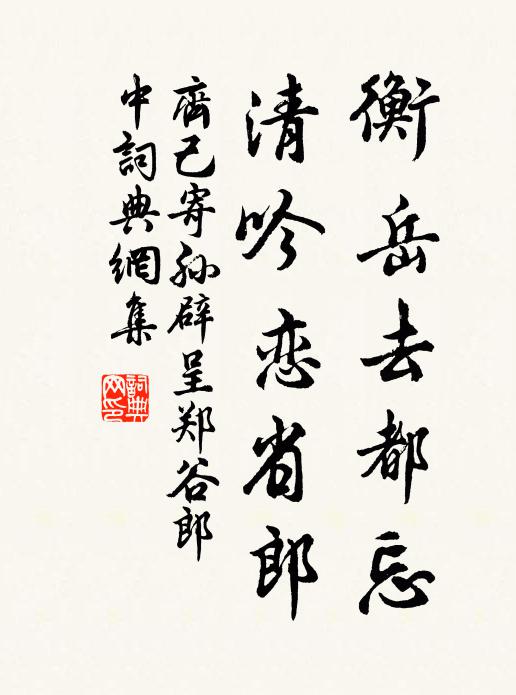 衡岳去都忘
清吟恋省郎
齊己寄孙辟呈郑谷郎
中詞典網集
詞典
网印